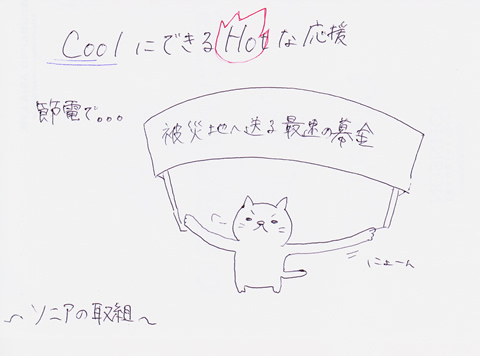 CoolにできるHotな応援
節電で。。。
被災地へ送る最速の募金
にょーん
～ソニアの取組～